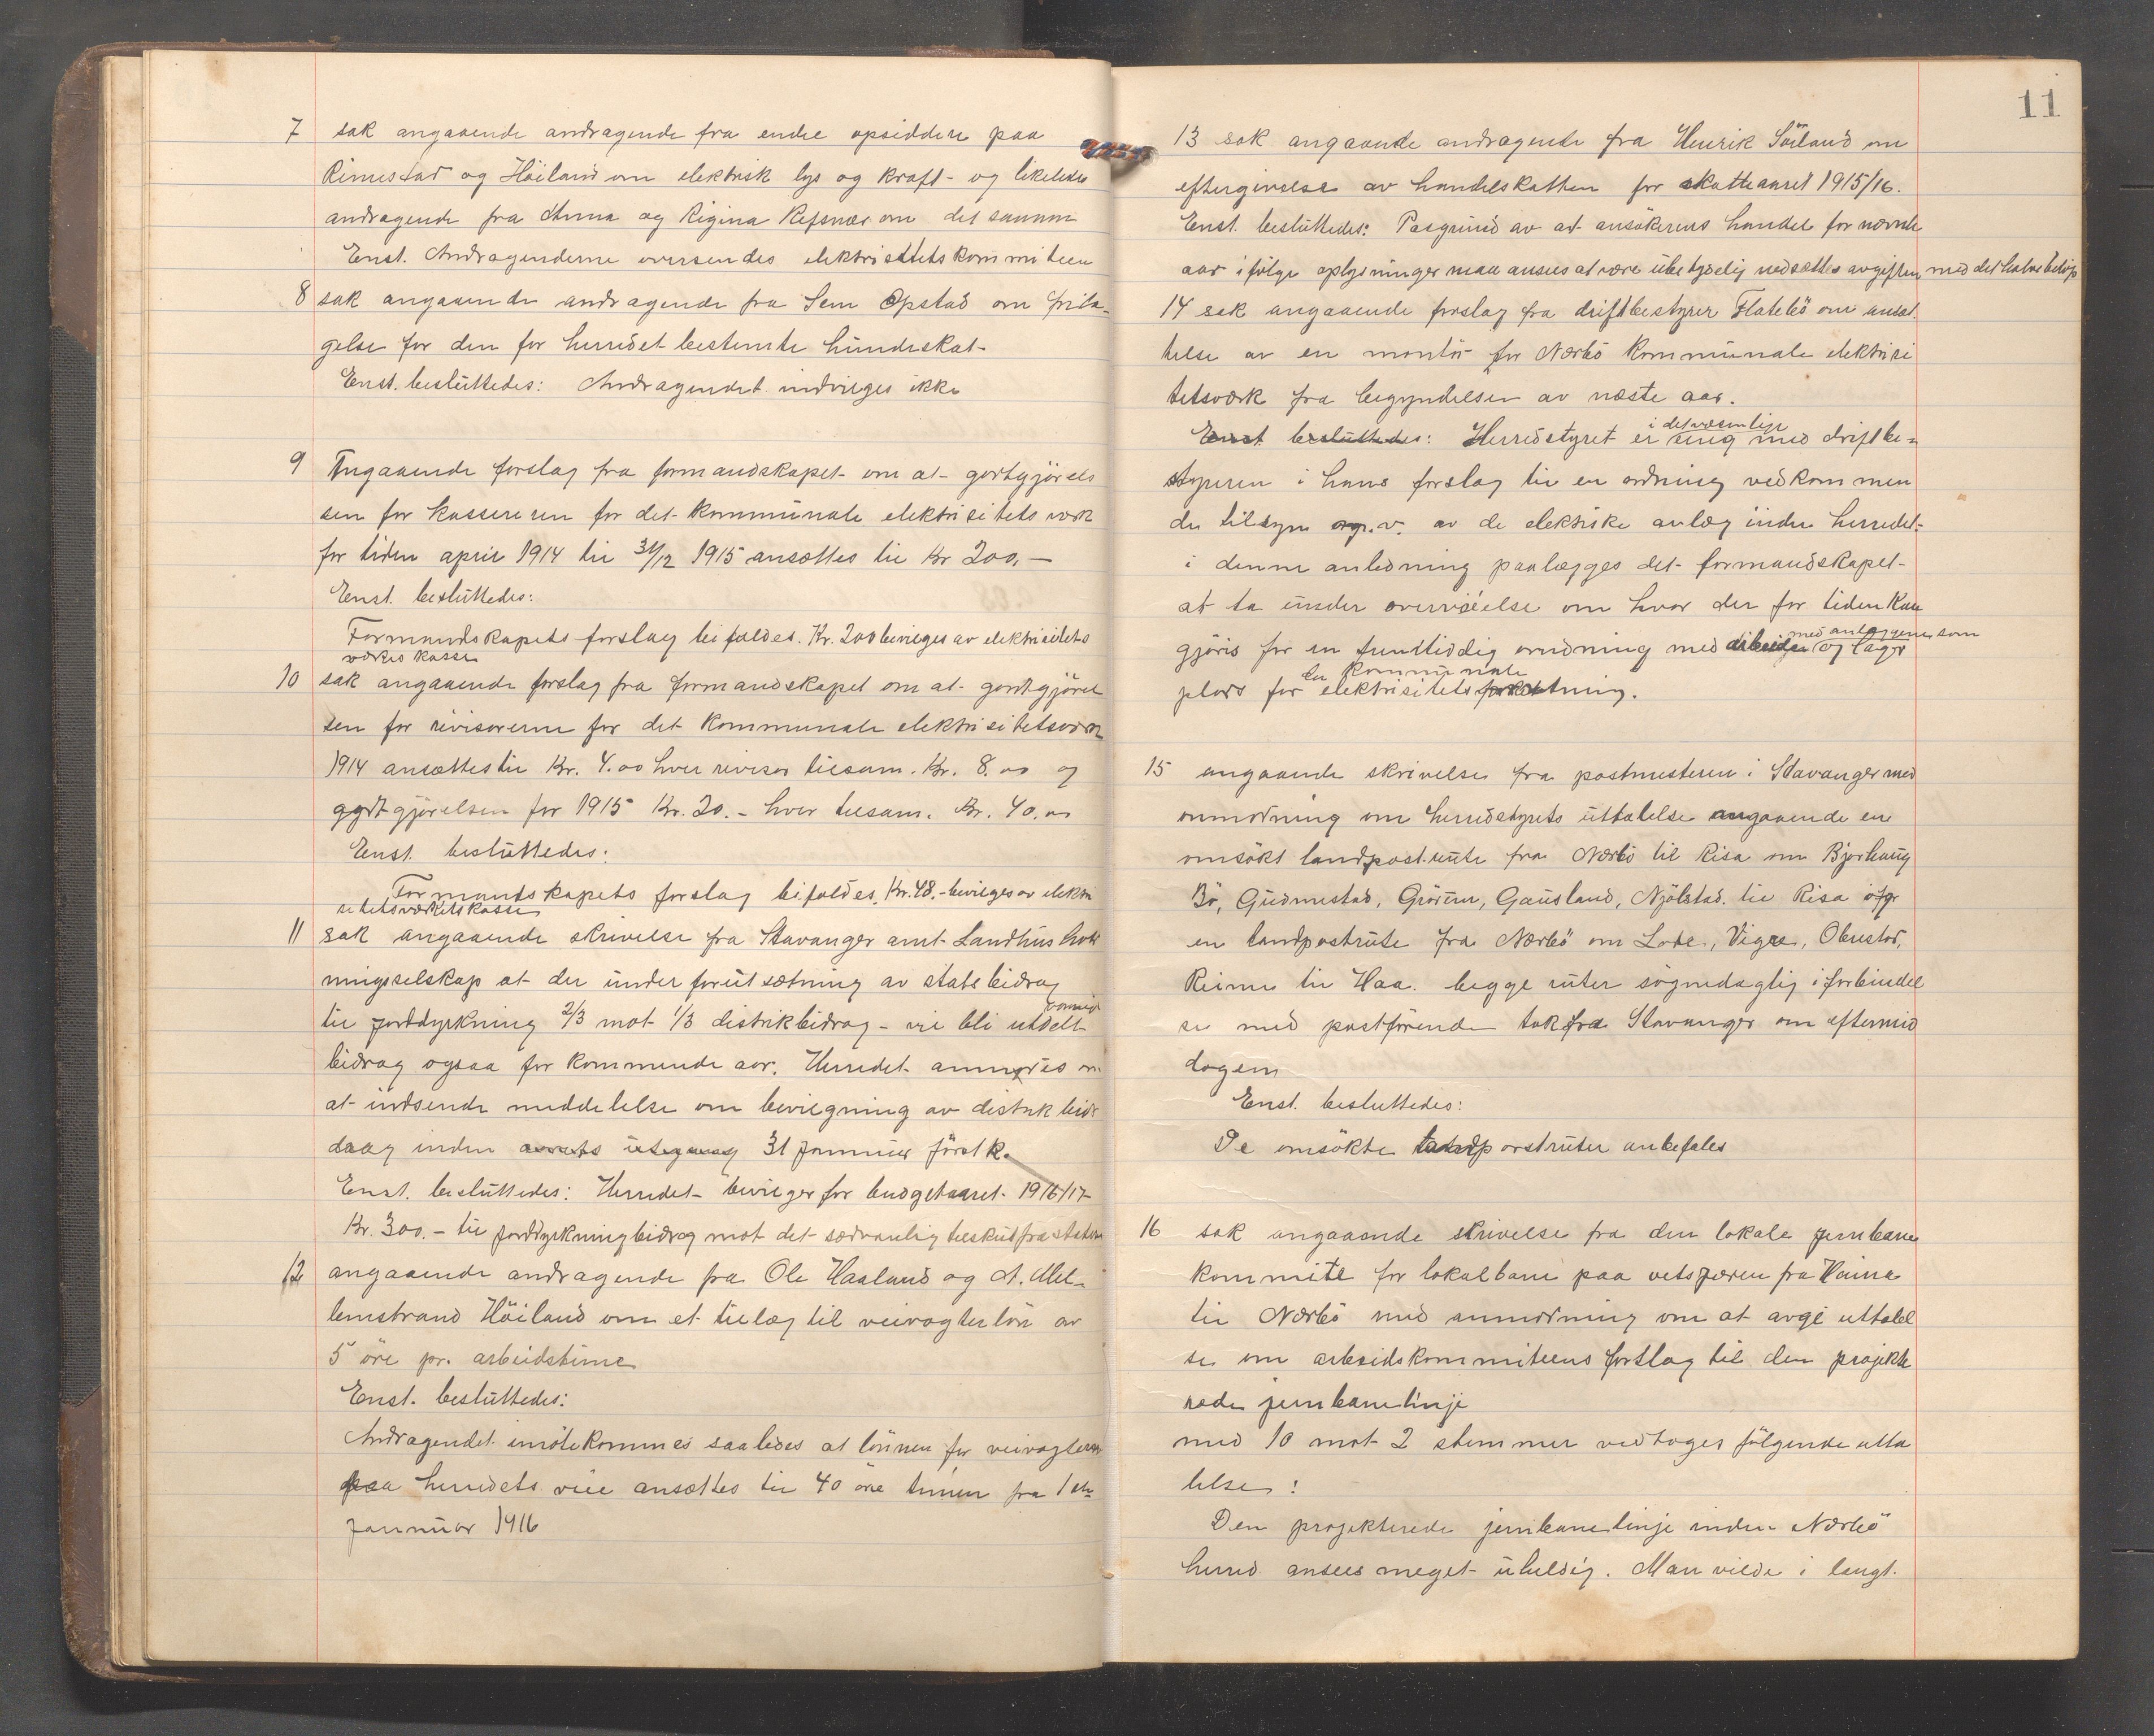 7 sak angaaende andragende fra endel opsiddere paa
Rimestad og Höiland om elektrisk lys og kraft- og likeledes
andragende fra Anna og Regina Refsnæs om det samme
Enst. Andragenderne oversendes elektrisitetskommiteen
8 sak angaaende andragende fra Sem Opstad om frita-
gelse for den for herredet bestemte hundeskat-
Enst. besluttedes: Andragendet indvilges ikke
9 Angaaende forslag fra formandskapet om at godtgjörels
sen for kassereren for det kommunale elektrisitetsverk
for tiden april 1914 til 31/12 1915 ansættes til Kr 200.—
Enst. besluttedes:
Formandskapets forslag bifaldes. Kr. 200 bevilges av elektrisitets
verkes kasse
10 sak angaaende forslag fra formandskapet om at godtgjörel
sen for revisorerne for det kommunale elektrisitetsverk
1914 ansættes til Kr. 4.00 hver revisor tilsam. Kr. 8.00 og
godtgjörelsen for 1915 Kr. 20.- hver tilsam. Kr. 40.00
Enst. besluttedes:
Formandskapets forslag bifaldes. Kr. 48.- bevilges av elektri
sitetsverkets kasse
11 sak angaaende skrivelse fra Stavanger amt Landhushold
ningsselskap at der under forutsætning av statsbidrag
til jorddyrkning 2/3 mot 1/3 distriktbidrag - vil bli utdelt
bidrag ogsaa for kommende aar. Herredet anmodes om
at indsende meddelelse om bevilgning av distrikbidr
drag inden aarets utgang 31 januar förstk.
Enst. besluttedes: Herredet bevilger for budgetaaret 1916/17
Kr. 300.- til jorddyrkningbidrag mot det sædvanlig tilskud fra staten
12 angaaende andragende fra Ole Haaland og A. Mel-
lemstrand Höiland om et tillæg til veivogterlön av
5 öre pr. arbeidstime
Enst. besluttedes:
Andragendet imötekommes saaledes at lönnen for veivogteren
paa herredets veie ansættes til 40 öre timen fra 1ste
januar 1916
11
13 sak angaaende andragende fra Henrik Söiland om
eftergivelse av handelskatten for skatteaaret 1915/16.
Enst. besluttedes: Paagrund av at ansökerens handel for nævnte
aar ifölge oplysninger maa ansees at være ubetydelig nedsættes avgiften med det halve belöp
14 sak angaaende forslag fra driftbestyrer Flatebö om ansæt
telse av en montör for Nærbö kommunale elektrisi
tetsverk fra begyndelsen av næste aar.
i det væsentlige
Enst besluttedes: Herredstyret er enig med driftbe-
styreren i hans forslag til en ordning vedkommen
de tilsyn m.v. av de elektriske anlæg inden herredet-
i denne anledning paalægges det formandskapet
at ta under overveielse om hvad der for tiden kan
med anlæggene som
gjöres for en fremtidig ordning med arbeider og lager
den kommunale
plads for elektrisitetsforsætning.
15 angaaende skrivelse fra postmesteren i Stavanger med
anmodning om herredstyrets uttalelse angaaende en
omsökt landpostrute fra Nærbö til Risa om Bjorhaug
Bö, Gudmestad, Grödem, Gausland, Njölstad. til Risa og
en landpostrute fra Nærbö om Lode, Vigre, Obrestad,
Reime til Haa. begge ruter sögnedaglig i forbindel
se med postförende tok fra Stavanger om eftermid
dagen
Enst. besluttedes:
De omsökte landpostruter anbefales
16 sak angaaende skrivelse fra den lokale jernbane
kommité for lokalbane paa vetsjæren fra Vaina
til Nærbö med anmodning om at avgi uttalel
se om arbeidskommiteens forslag til den projekte
rede jernbanelinje
med 10 mot 2 stemmer vedtoges fölgende utta
lelse:
Den projekterede jernbanelinje inden Nærbö
herred ansees meget uheldig. Man vilde i langt